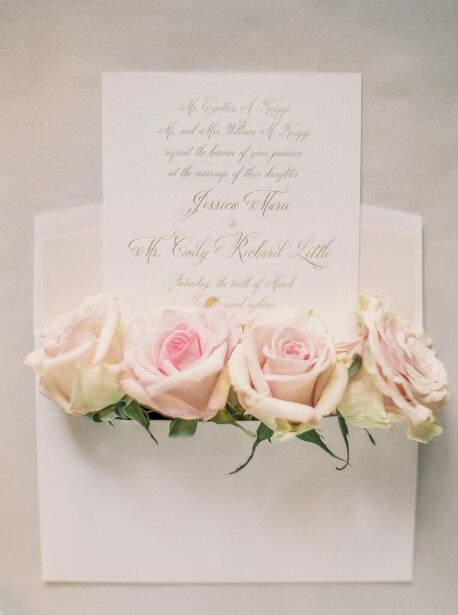 Mr. Cynthia A. Knapp
Mr. and Mrs. William M. Knapp
request the honour of your presence
at the marriage of their daughter
Jessica Marie
to
Mr. Cody Richard Little
Saturday, the tenth of March
thousand eighteen